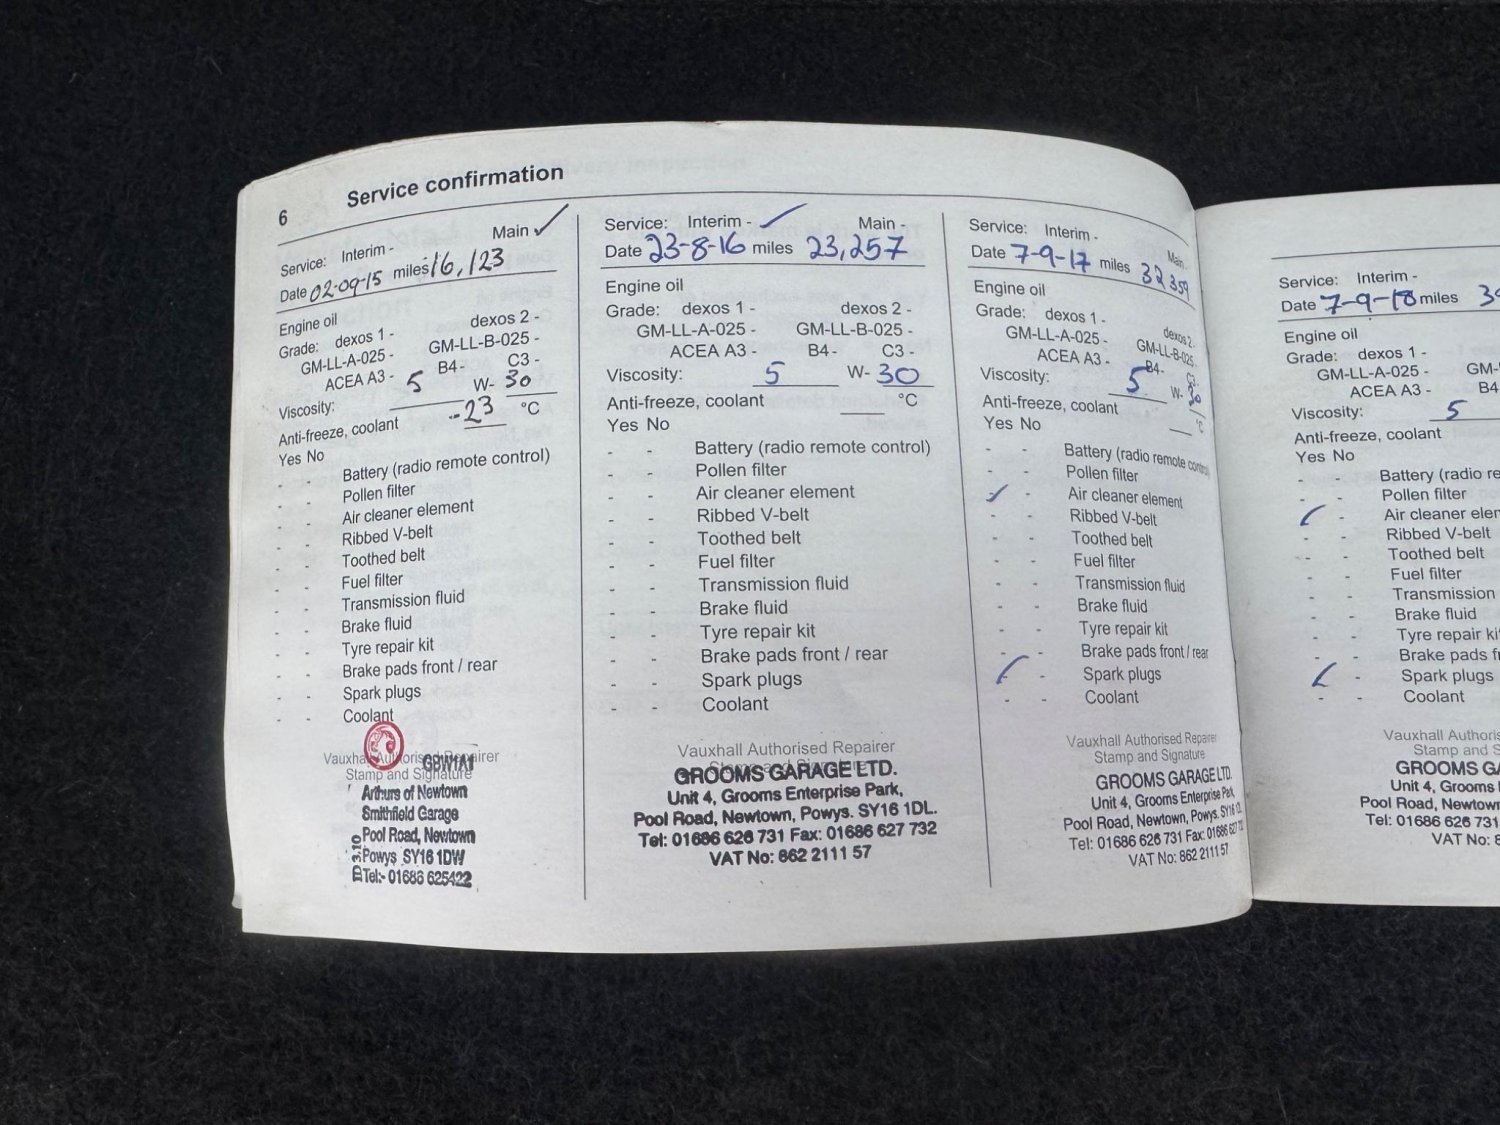 6 Service confirmation
Service: Interim - Main ✓
Date 02-09-15 miles 16,123
Engine oil
Grade: dexos 1 - dexos 2 -
GM-LL-A-025 - GM-LL-B-025 -
ACEA A3 - B4 - C3 -
Viscosity: 5 W- 30
Anti-freeze, coolant -23 °C
Yes No
- - Battery (radio remote control)
- - Pollen filter
- - Air cleaner element
- - Ribbed V-belt
- - Toothed belt
- - Fuel filter
- - Transmission fluid
- - Brake fluid
- - Tyre repair kit
- - Brake pads front / rear
- - Spark plugs
- - Coolant
Vauxhall Authorised Repairer
Stamp and Signature
Arthurs of Newtown
Smithfield Garage
Pool Road, Newtown
Powys SY16 1DW
Tel:- 01686 625422
Service: Interim - ✓ Main -
Date 23-8-16 miles 23,257
Engine oil
Grade: dexos 1 - dexos 2 -
GM-LL-A-025 - GM-LL-B-025 -
ACEA A3 - B4 - C3 -
Viscosity: 5 W- 30
Anti-freeze, coolant °C
Yes No
- - Battery (radio remote control)
- - Pollen filter
- - Air cleaner element
- - Ribbed V-belt
- - Toothed belt
- - Fuel filter
- - Transmission fluid
- - Brake fluid
- - Tyre repair kit
- - Brake pads front / rear
- - Spark plugs
- - Coolant
Vauxhall Authorised Repairer
Stamp and Signature
GROOMS GARAGE LTD.
Unit 4, Grooms Enterprise Park,
Pool Road, Newtown, Powys. SY16 1DL.
Tel: 01686 626 731 Fax: 01686 627 732
VAT No: 862 2111 57
Service: Interim - Main -
Date 7-9-17 miles 32359
Engine oil
Grade: dexos 1 - dexos 2 -
GM-LL-A-025 - GM-LL-B-025 -
ACEA A3 - B4 - C3 -
Viscosity: 5 W- 30
Anti-freeze, coolant °C
Yes No
- - Battery (radio remote control)
- - Pollen filter
✓ - Air cleaner element
- - Ribbed V-belt
- - Toothed belt
- - Fuel filter
- - Transmission fluid
- - Brake fluid
- - Tyre repair kit
- - Brake pads front / rear
✓ - Spark plugs
- - Coolant
Vauxhall Authorised Repairer
Stamp and Signature
GROOMS GARAGE LTD.
Unit 4, Grooms Enterprise Park,
Pool Road, Newtown, Powys. SY16
Tel: 01686 626 731 Fax: 01686 627
VAT No: 862 2111 57
Service: Interim -
Date 7-9-18 miles
Engine oil
Grade: dexos 1 -
GM-LL-A-025 - GM-
ACEA A3 - B4
Viscosity: 5
Anti-freeze, coolant
Yes No
- - Battery (radio re
- - Pollen filter
✓ - Air cleaner elem
- - Ribbed V-belt
- - Toothed belt
- - Fuel filter
- - Transmission
- - Brake fluid
- - Tyre repair kit
- - Brake pads fr
✓ - Spark plugs
- - Coolant
Vauxhall Authoris
Stamp and S
GROOMS GA
Unit 4, Grooms
Pool Road, Newtown
Tel: 01686 626 731
VAT No: 8